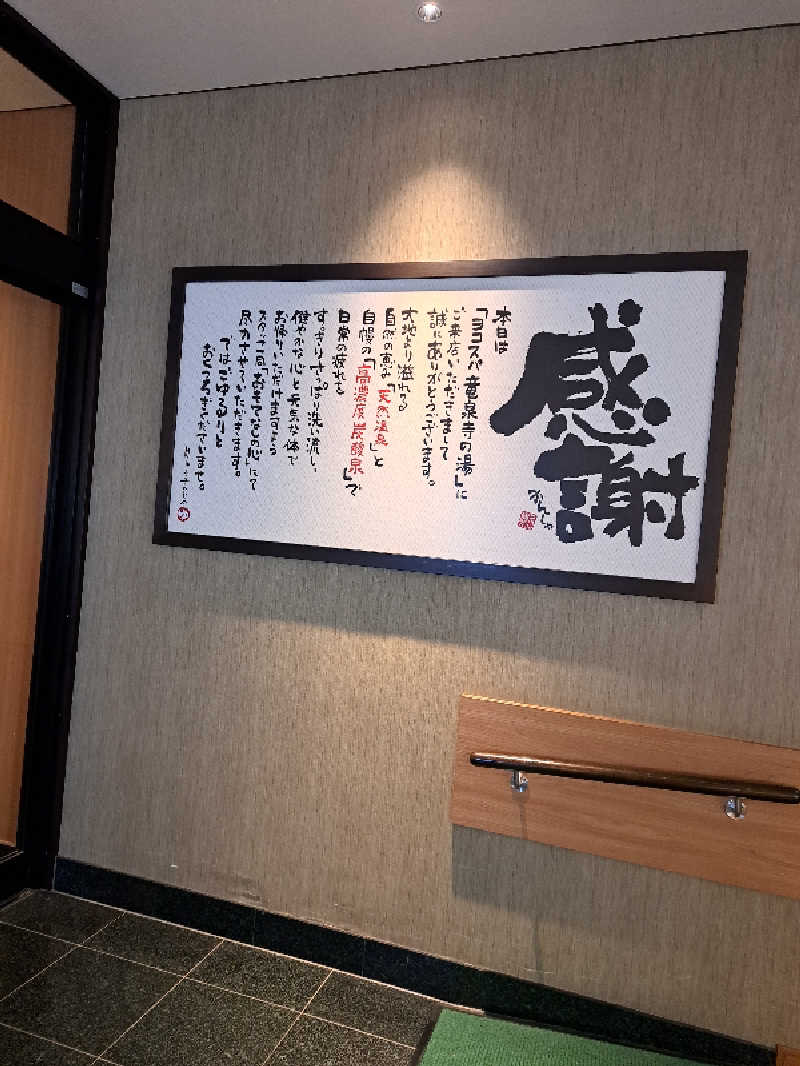 感謝
かんしゃ
本日は
「ヨコスパ竜泉寺の湯」に
ご来店いただきまして
誠にありがとうございます。
大地より溢れでる
自然の恵み「天然温泉」と
自慢の「高濃度炭酸泉」で
日常の疲れを
すっきりさっぱり洗い流し、
健やかな心と元気な体で
お帰りいただけますよう
スタッフ一同「おもてなしの心」にて
尽力させていただきます。
ではごゆるりと
おくつろぎくださいませ。